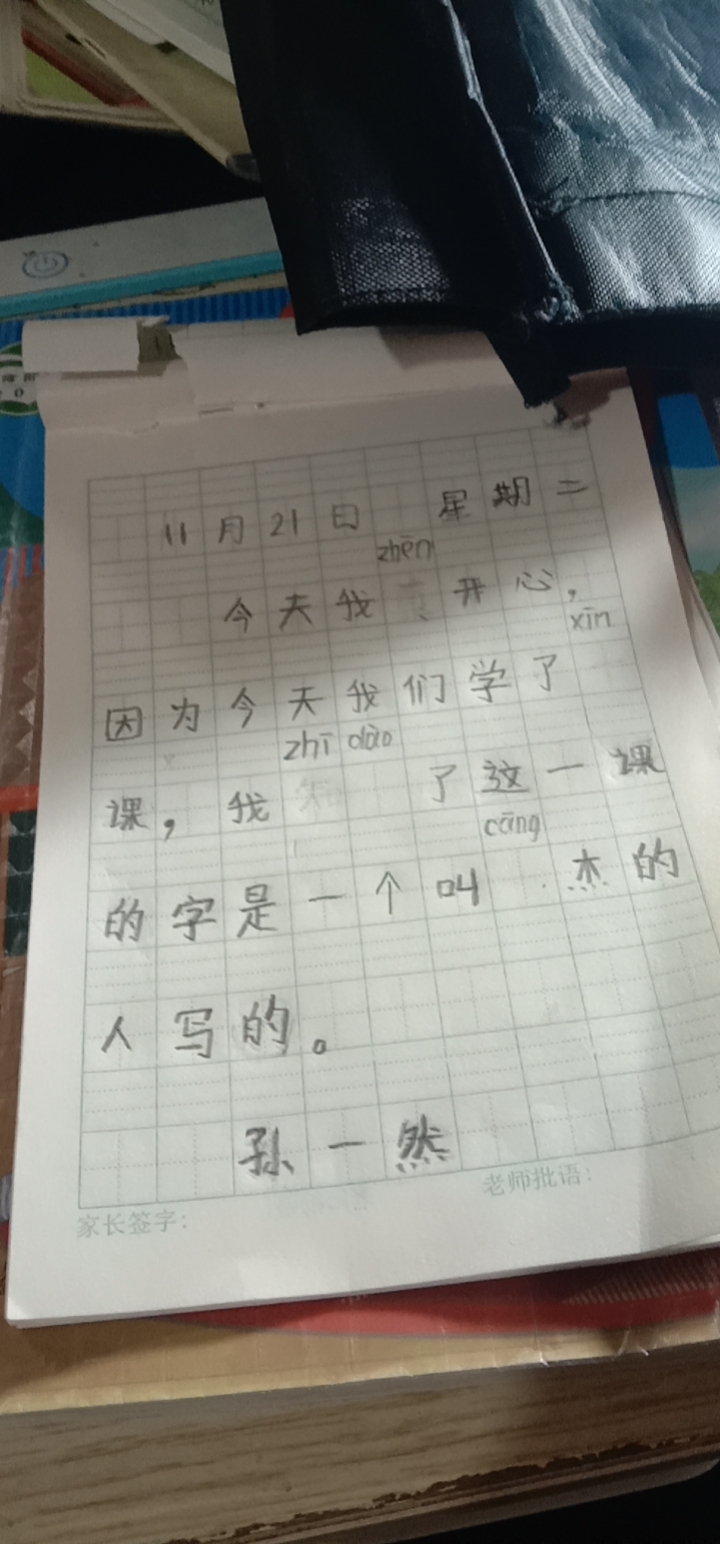 11月21日 星期二
zhēn
今天我 开心，
xīn
因为今天我们学了
zhī dào
课，我 了这一课
cāng
的字是一个叫 杰的
人写的。
孙一然
老师批语：
家长签字：